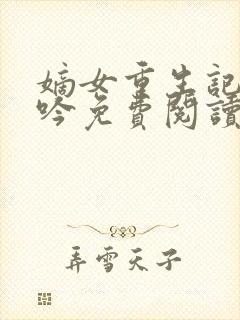 嫡女重生記
吟免費閱讀
弄雪天子